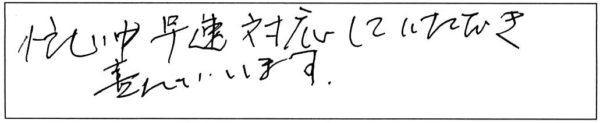 忙しい中早速対応していただき
喜んでいます.